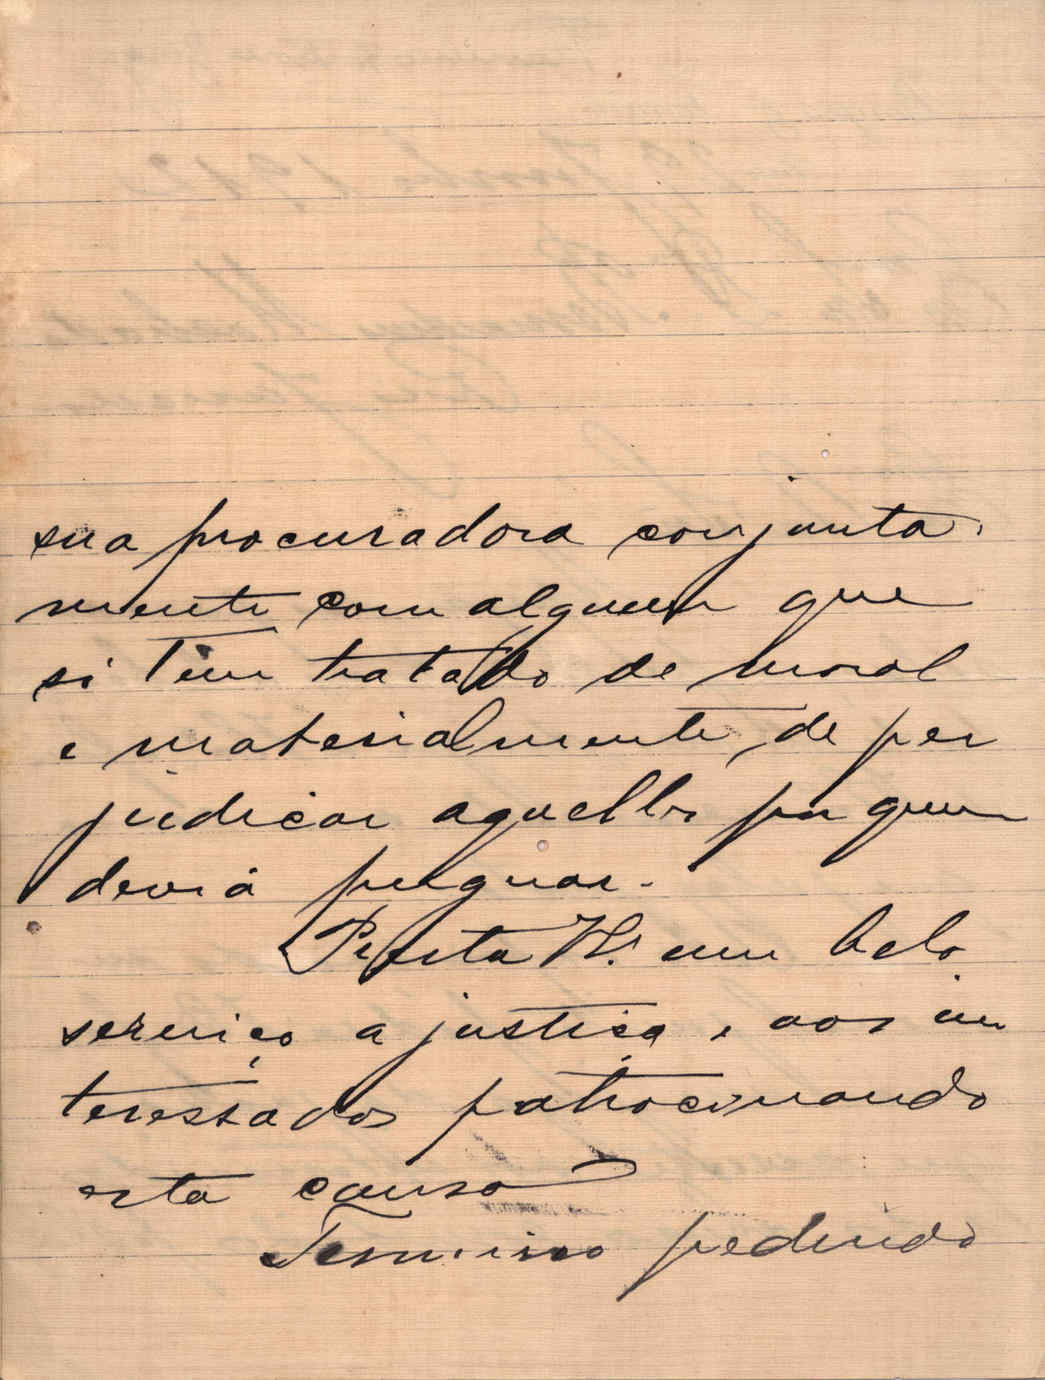 sua procuradora conjunta
mente com alguem que
si tem tratado de moral
e materialmente, de per
judicar aquelles por quem
deviá pugnar.
Presta V. um belo
serviço a justiça e aos in
teressados patrocinando
esta causa
Termino pedindo